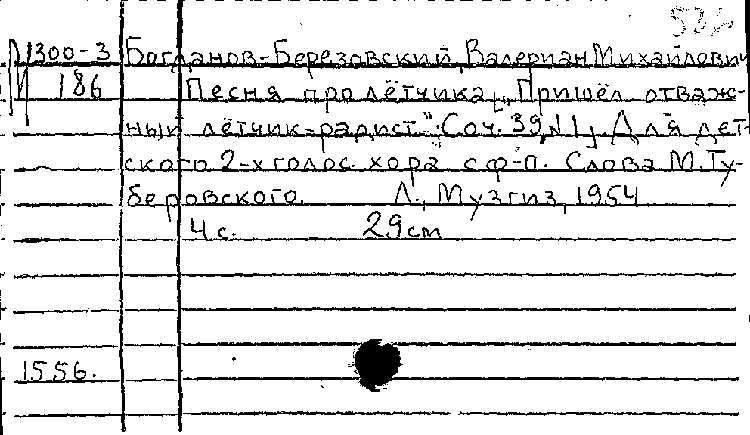 536
М300-3 Богданов-Березовский, Валериан Михайлович
186 Песня про лётчика [„Пришёл отваж-
ный лётчик-радист". Соч. 39, №1] Для дет-
ского 2-х голос. хора с ф-п. Слова М. Ту-
беровского. Л., Музгиз, 1954
4 с. 29 cm
1556.